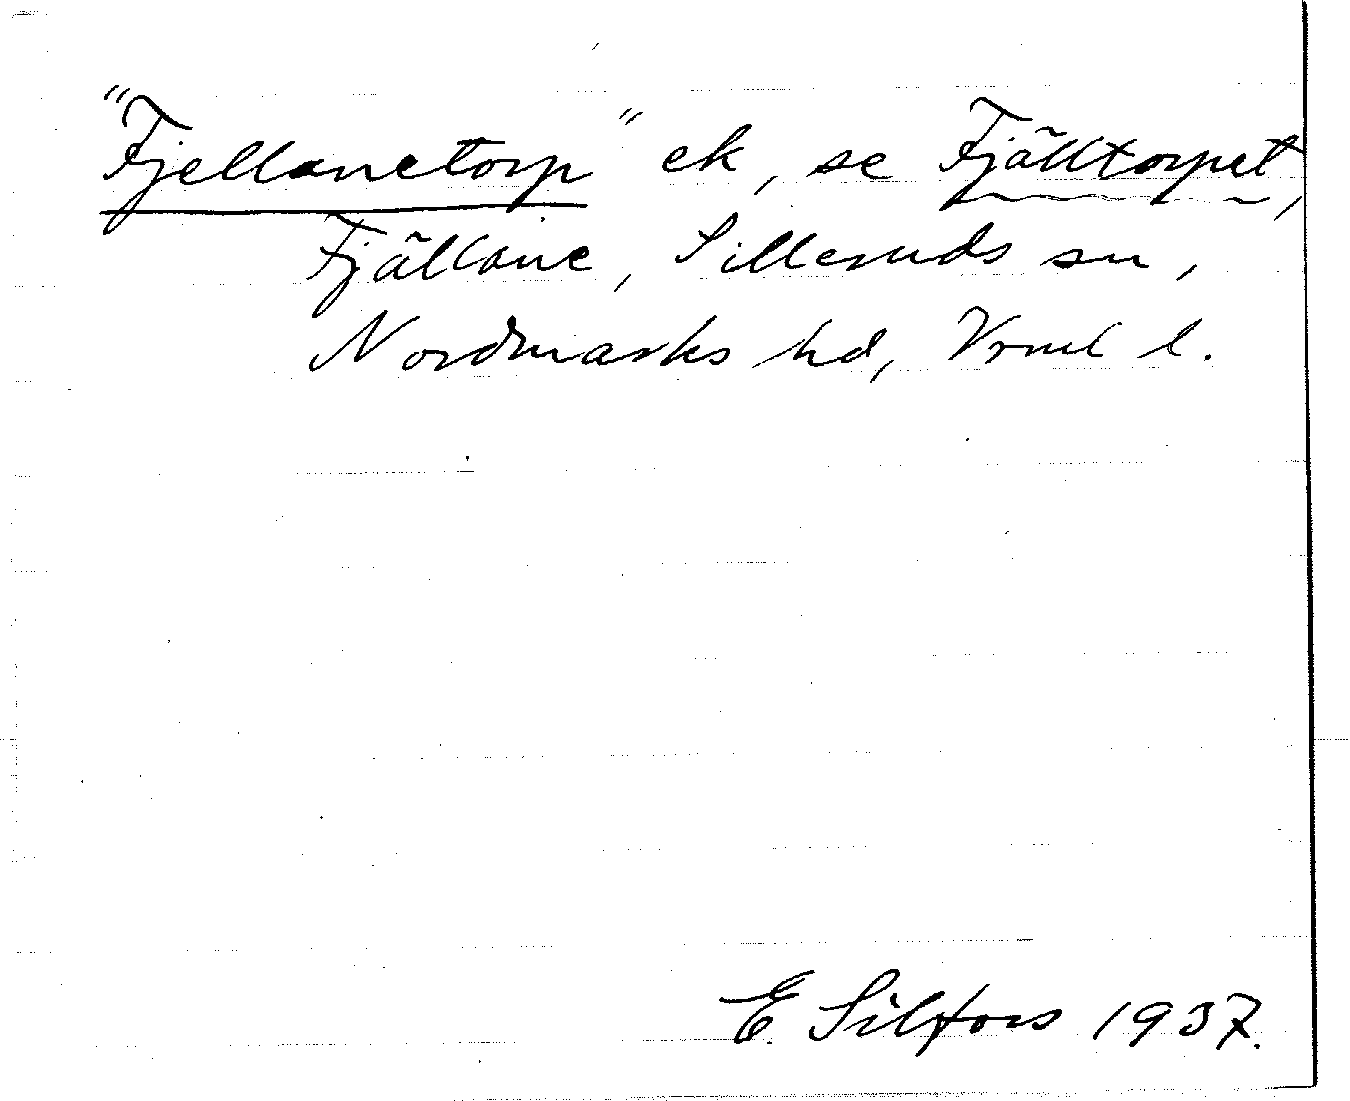 "Fjellanetorp" ek, se Fjälltorpet,
Fjällane, Silleruds sn,
Nordmarks hd, Vrml l.
E. Silfors 1937.